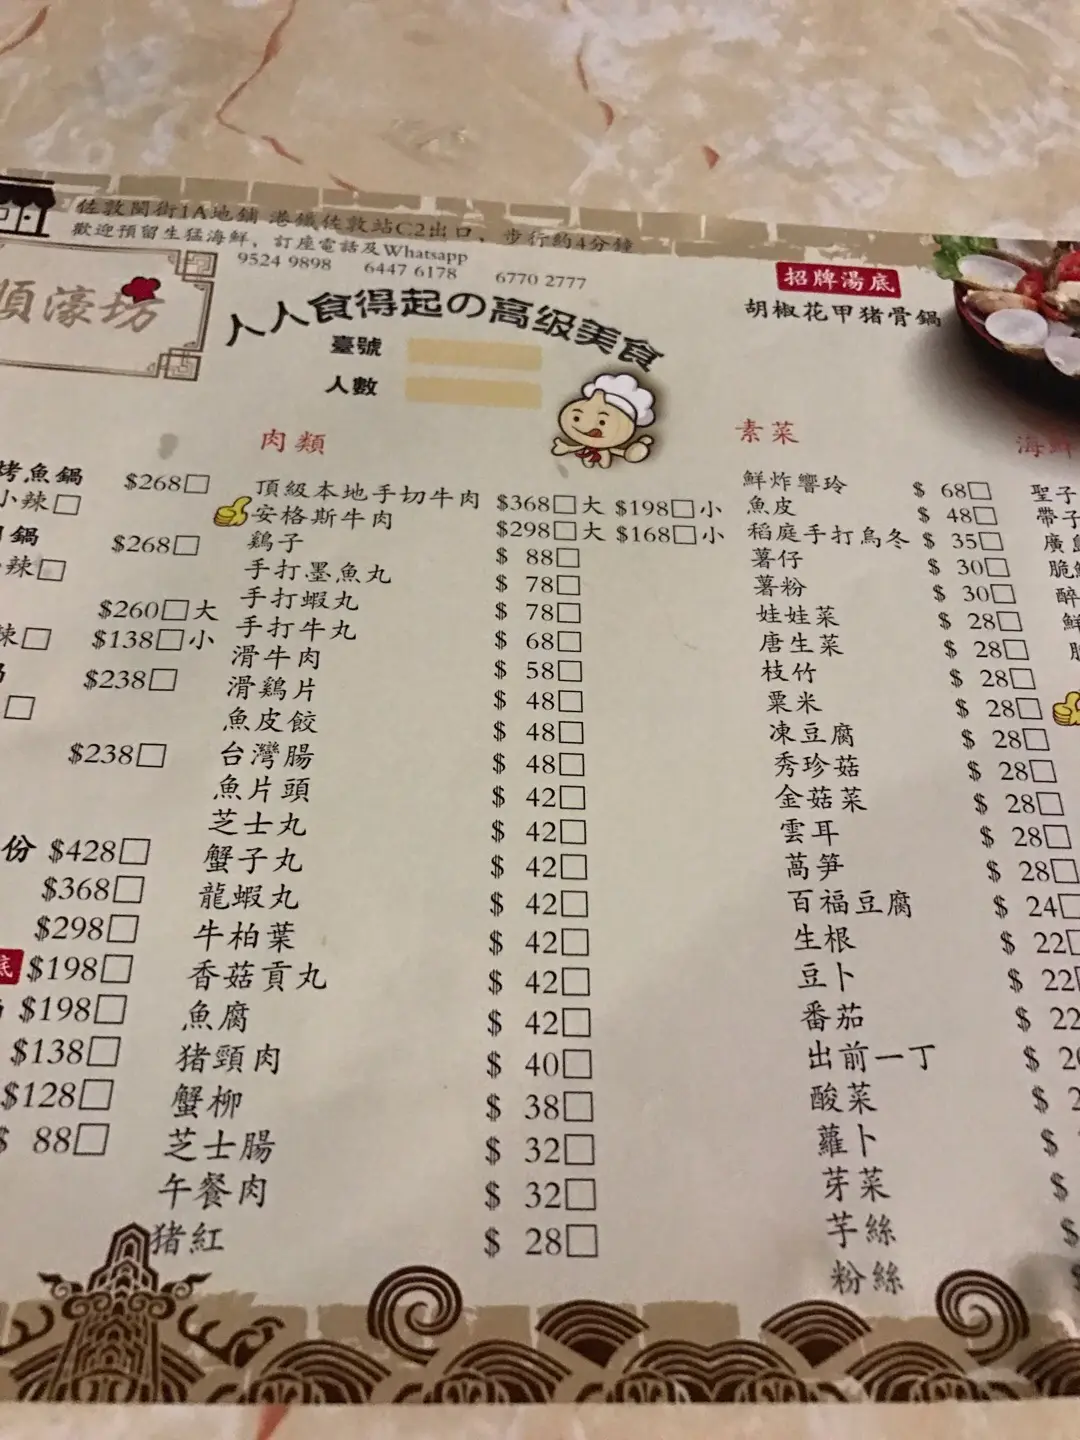 佐敦閩街1A地鋪 港鐵佐敦站C2出口，步行約4分鐘
歡迎預留生猛海鮮，訂座電話及Whatsapp
9524 9898 6447 6178 6770 2777
順濠坊
人人食得起の高級美食
臺號
人數
招牌湯底
胡椒花甲猪骨鍋
烤魚鍋 $268
小辣
鍋 $268
辣
$260 大
辣 $138 小
$238
$238
份 $428
$368
$298
底 $198
$198
$138
$128
$ 88
肉類
頂級本地手切牛肉 $368 大 $198 小
安格斯牛肉 $298 大 $168 小
鷄子 $ 88
手打墨魚丸 $ 78
手打蝦丸 $ 78
手打牛丸 $ 68
滑牛肉 $ 58
滑鷄片 $ 48
魚皮餃 $ 48
台灣腸 $ 48
魚片頭 $ 42
芝士丸 $ 42
蟹子丸 $ 42
龍蝦丸 $ 42
牛柏葉 $ 42
香菇貢丸 $ 42
魚腐 $ 42
猪頸肉 $ 40
蟹柳 $ 38
芝士腸 $ 32
午餐肉 $ 32
猪紅 $ 28
素菜
鮮炸響玲 $ 68
魚皮 $ 48
稻庭手打烏冬 $ 35
薯仔 $ 30
薯粉 $ 30
娃娃菜 $ 28
唐生菜 $ 28
枝竹 $ 28
粟米 $ 28
凍豆腐 $ 28
秀珍菇 $ 28
金菇菜 $ 28
雲耳 $ 28
萵笋 $ 28
百福豆腐 $ 24
生根 $ 22
豆卜 $ 22
番茄 $ 22
出前一丁 $ 2
酸菜 $ 2
蘿卜 $
芽菜 $
芋絲 $
粉絲
海鮮
聖子
帶子
廣
脆
醉
鮮